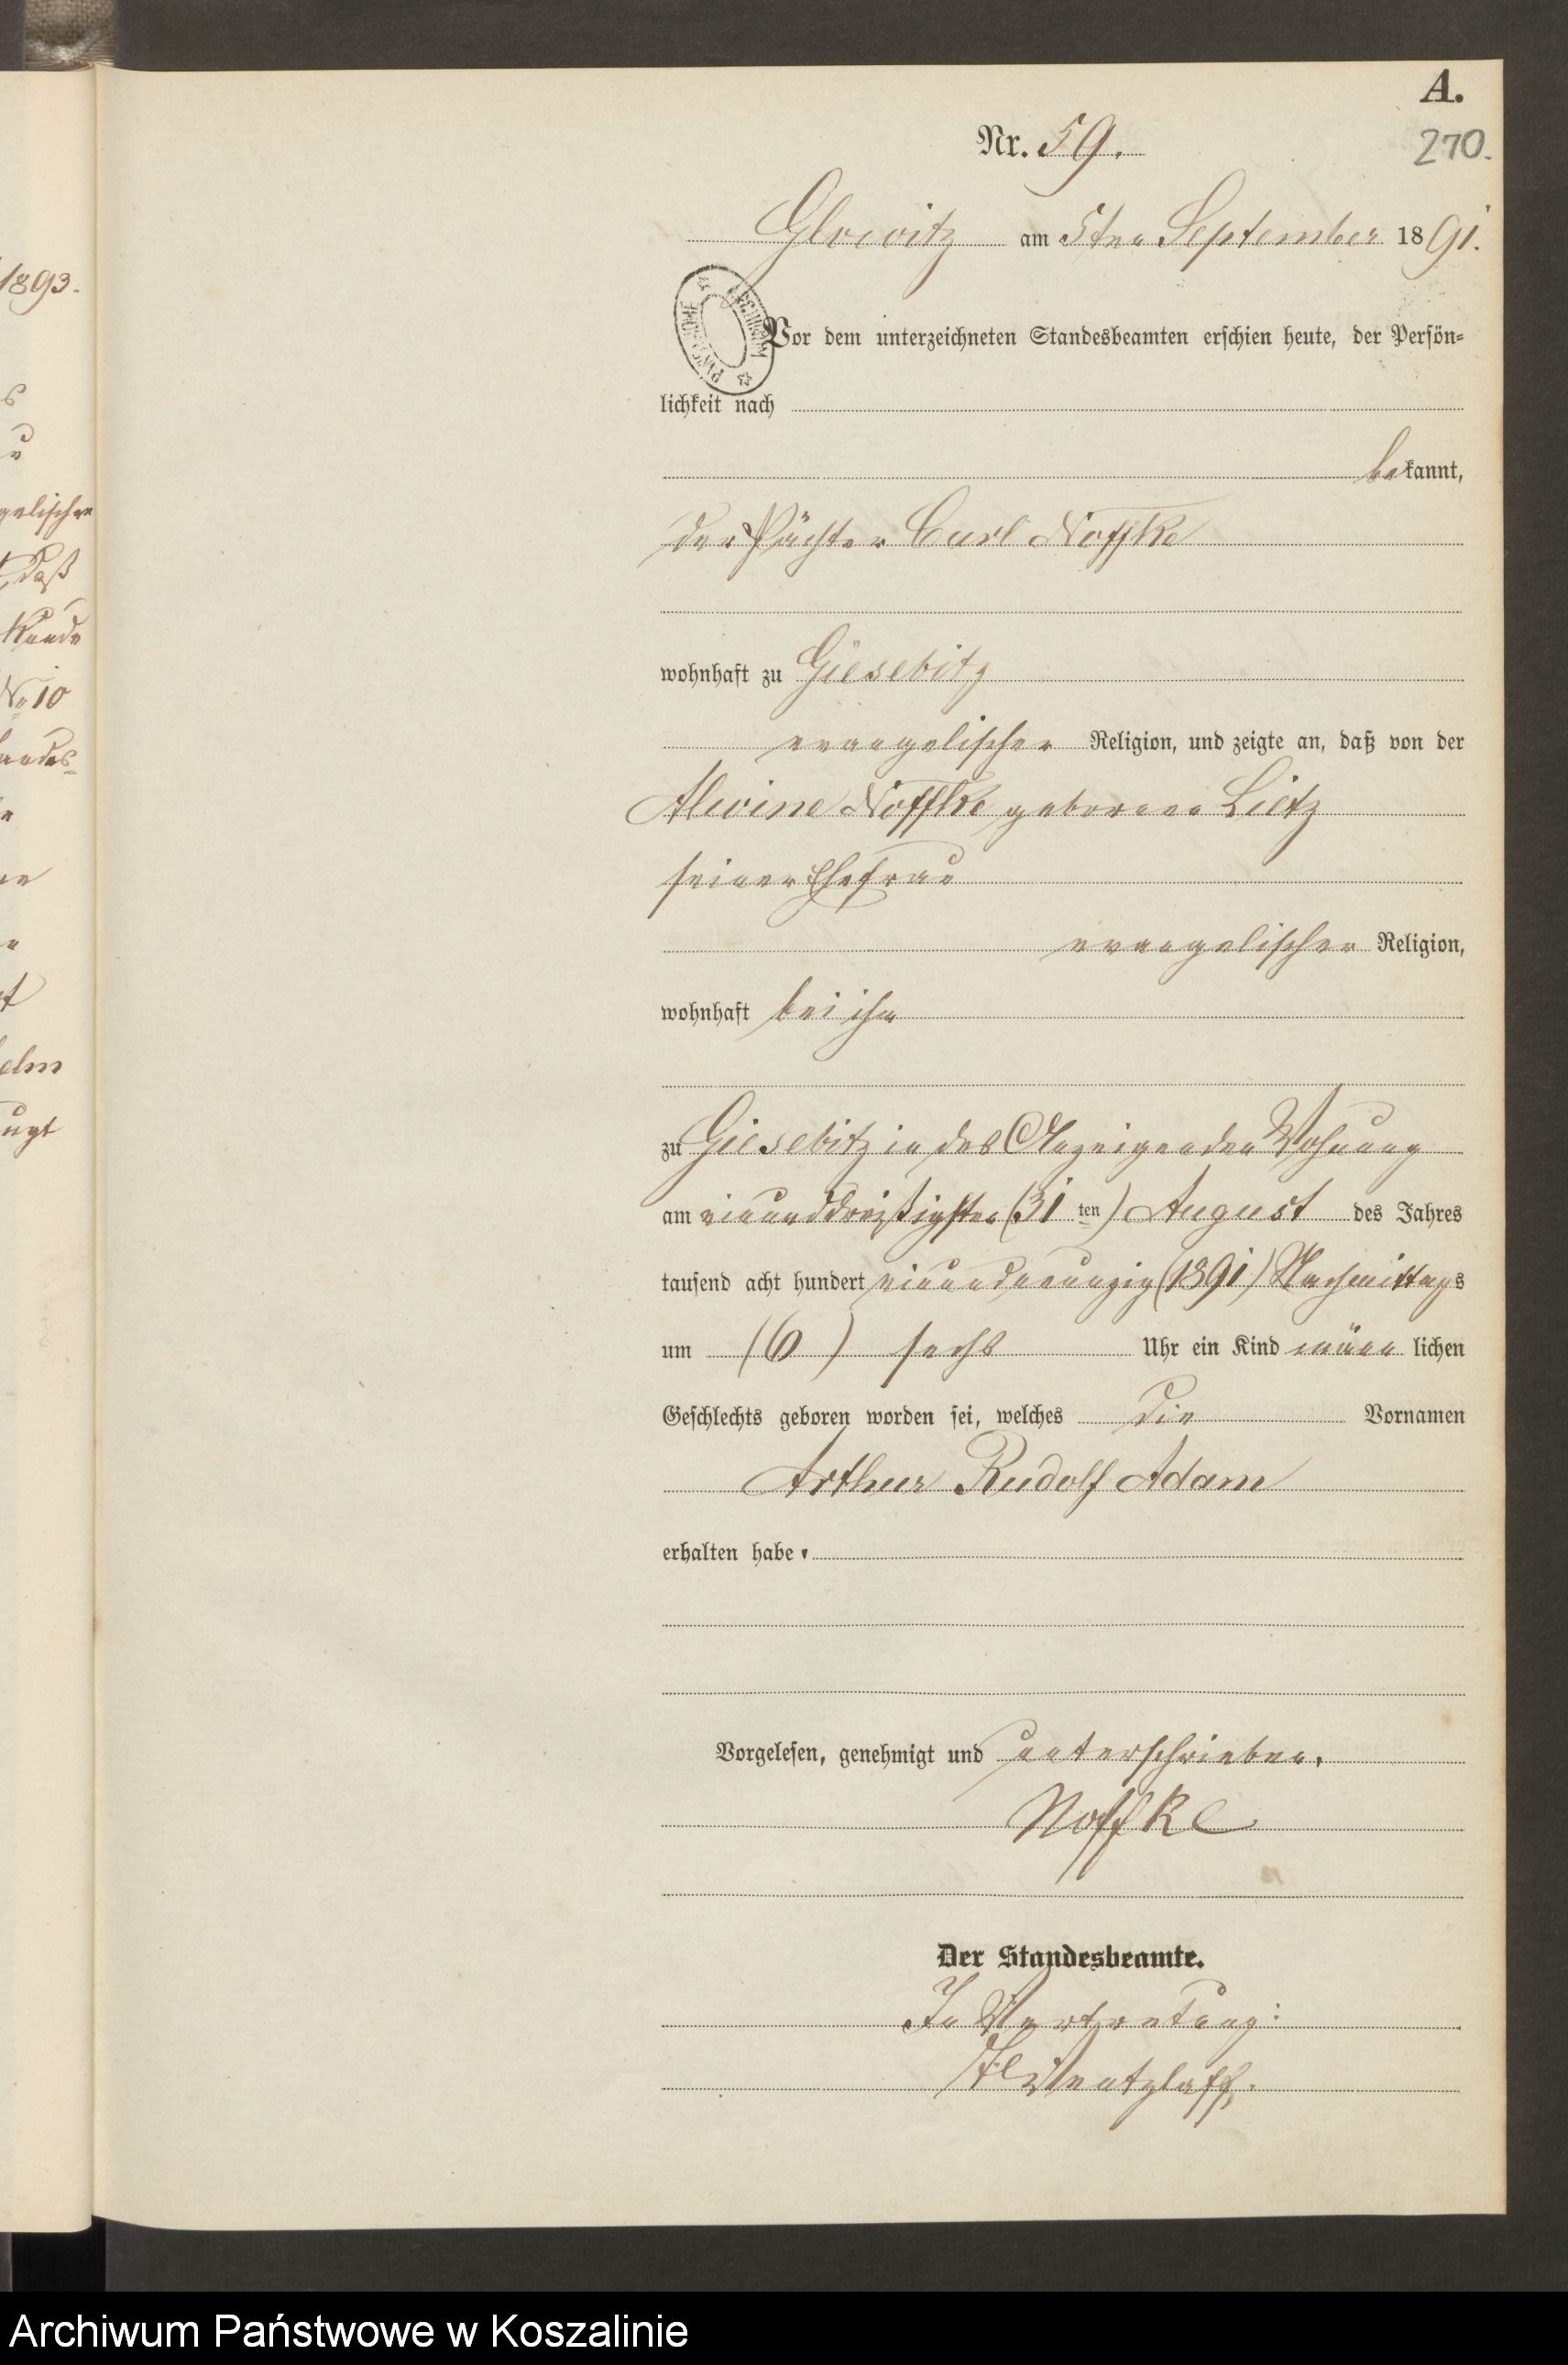 A.
Nr. 59.
270.
Glowitz am 5ten September 1891.
Vor dem unterzeichneten Standesbeamten erschien heute, der Persön-
lichkeit nach
bekannt,
der Pächter Carl Noffke
wohnhaft zu Giesebitz
evangelischer Religion, und zeigte an, daß von der
Alwine Noffke geborene Lietz
seiner Ehefrau
evangelischer Religion,
wohnhaft bei ihm
zu Giesebitz in des Anzeigenden Wohnung
am einunddreißigsten (31ten) August des Jahres
tausend acht hundert einundneunzig (1891) Nachmittags
um (6) sechs Uhr ein Kind männlichen
Geschlechts geboren worden sei, welches die Vornamen
Arthur Rudolf Adam
erhalten habe.
Vorgelesen, genehmigt und unterschrieben.
Noffke
Der Standesbeamte.
In Vertretung:
Wentzlaff.
1893.
gelischen
daß
No 10
Archiwum Państwowe w Koszalinie